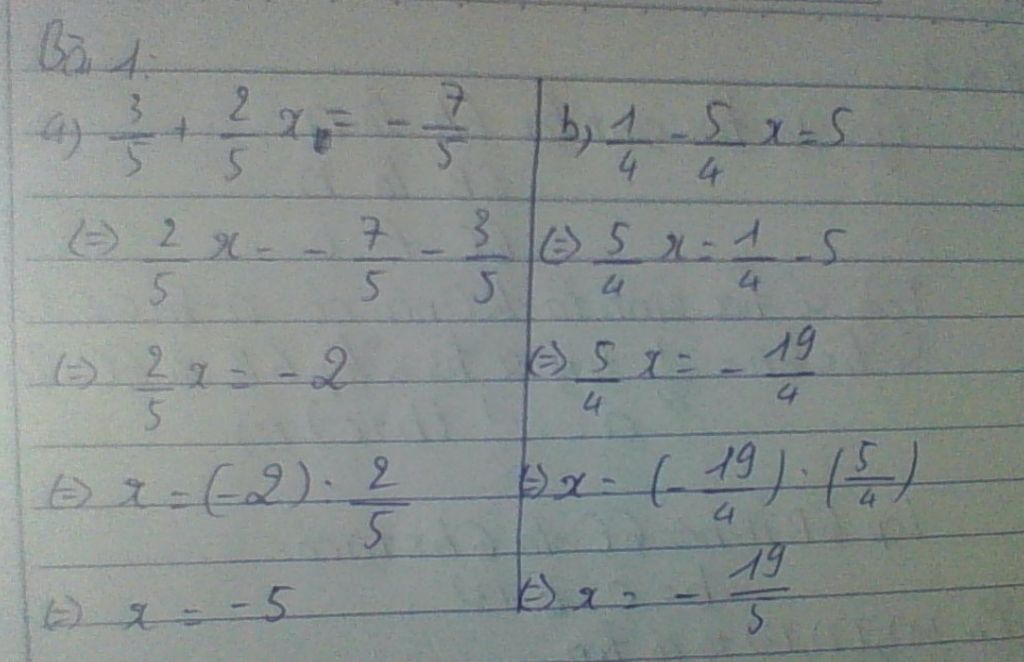 Bài 1:
a) 3/5 + 2/5 x = - 7/5
(=) 2/5 x = - 7/5 - 3/5
(=) 2/5 x = - 2
(=) x = (-2) . 2/5
(=) x = -5
b) 1/4 - 5/4 x = 5
(=) 5/4 x = 1/4 - 5
(=) 5/4 x = - 19/4
(=) x = (- 19/4) . (5/4)
(=) x = - 19/5